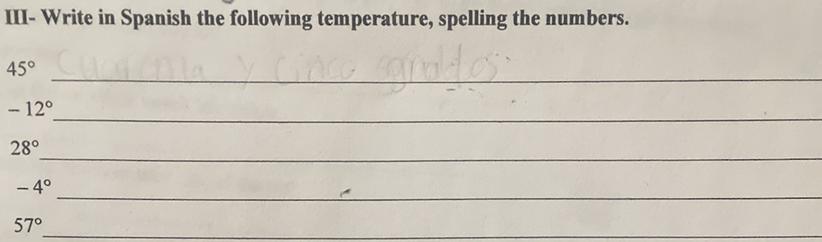 III- Write in Spanish the following temperature, spelling the numbers.
45° Cuarenta y cinco
– 12°
28°
– 4°
57°